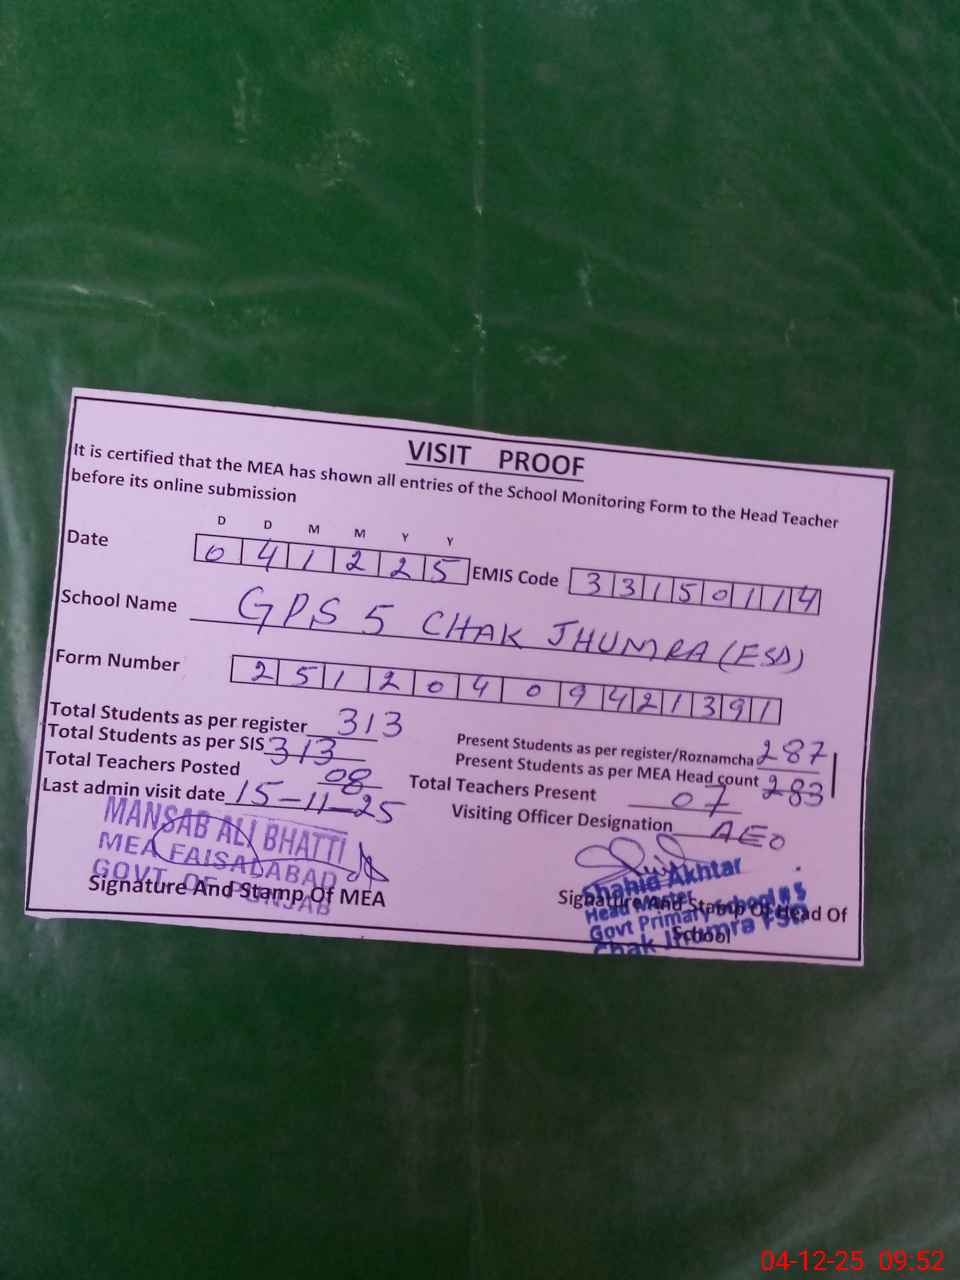 VISIT PROOF
It is certified that the MEA has shown all entries of the School Monitoring Form to the Head Teacher
before its online submission
D D M M Y Y
Date 041225 EMIS Code 33150114
School Name GPS 5 CHAK JHUMRA (FSD)
Form Number 25120409421391
Total Students as per register 313
Total Students as per SIS 313
Present Students as per register/Roznamcha 287
Total Teachers Posted 08
Present Students as per MEA Head count 283
Last admin visit date 15-11-25
Total Teachers Present 07
Visiting Officer Designation AEO
MANSAB ALI BHATTI
MEA FAISALABAD
GOVT. OF PUNJAB
Signature And Stamp Of MEA
Shahid Akhtar
Head Master
Govt Primary School # 5
Chak Jhumra FSD
Signature And Stamp Of Head Of
School
04-12-25 09:52